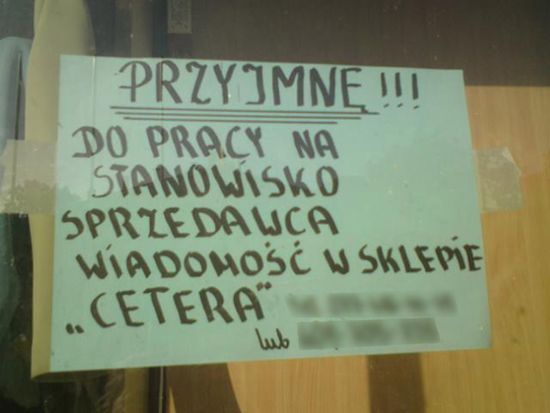 PRZYJMNĘ!!!
DO PRACY NA
STANOWISKO
SPRZEDAWCA
WIADOMOŚĆ W SKLEPIE
„CETERA"
lub